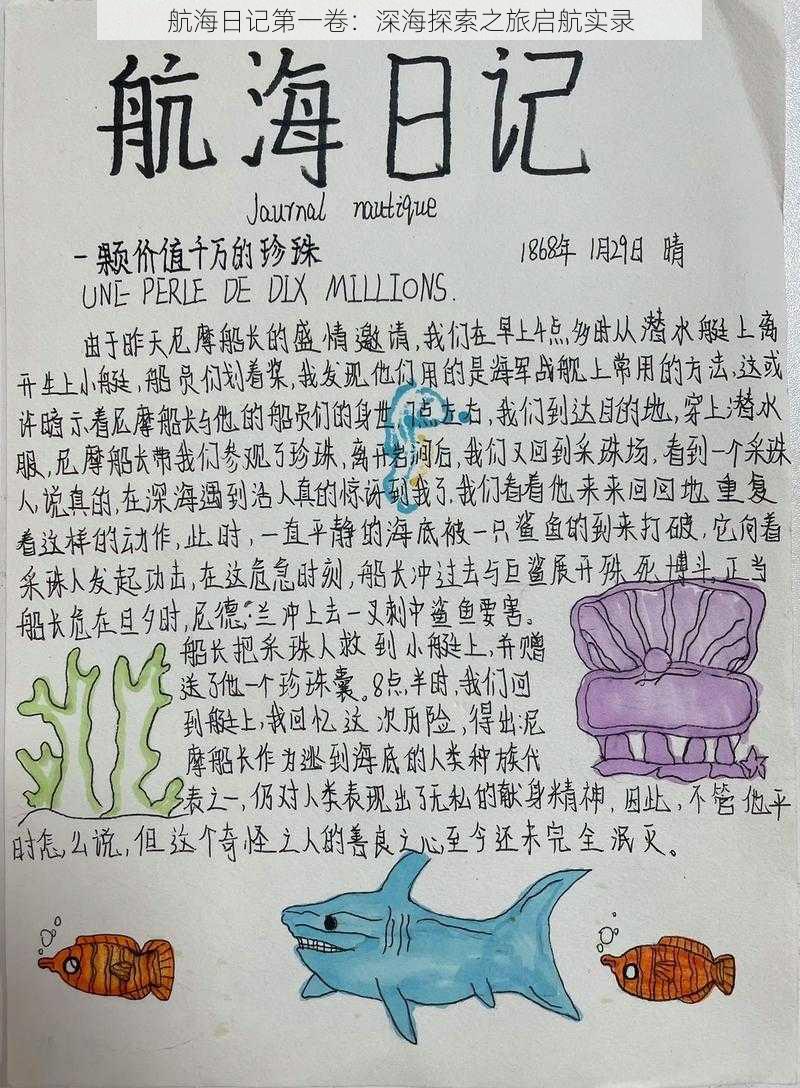 航海日记第一卷：深海探索之旅启航实录
航海日记
Journal nautique
一颗价值千万的珍珠 1868年 1月29日 晴
UNE PERLE DE DIX MILLIONS.
由于昨天尼摩船长的盛情邀请,我们在早上4点多时从潜水艇上离
开坐上小艇,船员们划着桨,我发现他们用的是海军战舰上常用的方法,这或
许暗示着尼摩船长与他的船员们的身世,门点左右,我们到达目的地,穿上潜水
服,尼摩船长带我们参观了珍珠,离开岩洞后,我们又回到采珠场,看到一个采珠
人,说真的,在深海遇到活人真的惊讶到我了,我们看着他来来回回地重复
着这样的动作,此时,一直平静的海底被一只鲨鱼的到来打破,它向着
采珠人发起功击,在这危急时刻,船长冲过去与巨鲨展开殊死博斗,正当
船长危在旦夕时,尼德·兰冲上去一叉刺中鲨鱼要害。
船长把采珠人救到小艇上,并赠
送了他一个珍珠囊。8点半时,我们回
到艇上,我回忆这次历险,得出:尼
摩船长作为逃到海底的人类种族代
表之一,仍对人类表现出了无私的献身精神,因此,不管他平
时怎么说,但这个奇怪之人的善良之心至今还未完全泯灭。